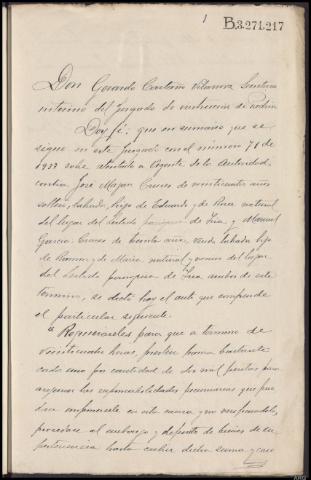 1
B.3.271.217
Don Gerardo Secretario
interino del Juzgado de instrucción de
Doy fé: que en sumario que se
sigue en este Juzgado con el número 71 de
1933 sobre atentado a Agente de la Autoridad,
contra José de veinticuatro años
soltero, labrador, hijo de Eduardo y de natural
del lugar del parroquia de y Manuel
García de treinta años, labrador hijo
de Ramon y de María, natural y vecino del lugar
del parroquia de ambos de este
termino, se dictó hoy el auto que comprende
el particular siguiente.
Requieraseles para que a termino de
veinticuatro horas, presten fianza bastante
cada uno por cantidad de dos mil pesetas para
asegurar las responsabilidades pecuniarias que pue
dan imponerse en esta causa y no verificandolo,
procedase al embargo y deposito de bienes de su
pertenencia hasta cubrir dicha suma y caso